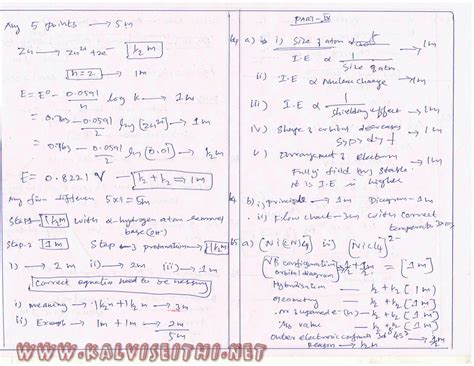 Any 5 points → 5m
Zn → Zn²⁺ + 2e⁻ 1/2 m
n = 2 → 1m
E = E⁰ - 0.0591/n log K → 1m
= 0.763 - 0.0591/2 log [Zn²⁺] → 1/2 m
= 0.763 - 0.0591/2 log (0.01) → 1/2 m
E = 0.8221 V → 1/2 + 1/2 ⇒ 1m
Any five different 5x1 = 5m
Step-1 1/2 m with α-hydrogen atom removal
base (OH⁻)
Step-2 1m Step-3 protonation → 1/2 m
i) → 2m ii) → 2m iii) → 1m
Correct equation need to be necessary
i) meaning → 1 1/2 + 1 1/2 → 3m
ii) Example → 1m + 1m → 2m
5m
PART-IV
a) i) Size of atom
I.E ∝ 1/Size of atom → 1m
ii) I.E ∝ Nuclear charge → 1m
iii) I.E ∝ 1/shielding effect → 1m
iv) Shape of orbital decreases
s>p>d>f → 1m
v) Arrangement of electron
Fully filled stable
it is I.E is higher → 1m
b) i) principle → 1m Diagram - 1m
ii) Flow chart - 3m with correct
temperature
a) [Ni(CN)4] ii) [NiCl4]²⁻
VB configuration
orbital diagram 1/2 + 1/2 = [1m]
Hybridisation — 1/2 + 1/2 [1m]
geometry — 1/2 + 1/2 [1m]
no unpaired e(n) — 1/2 + 1/2 [1m]
μs value — 1/2 + 1/2 [1m]
outer electronic configuration 3d⁸4s²
reason → 1/2 m
WWW.KALVISEITHI.NET